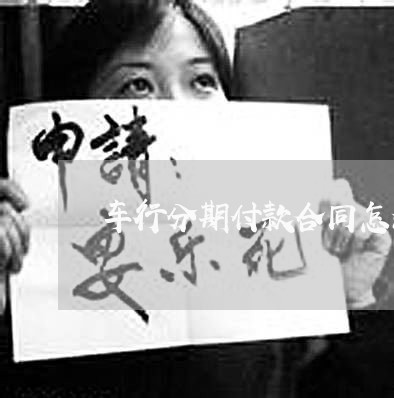 申請:
车行分期付款合同怎
安乐死